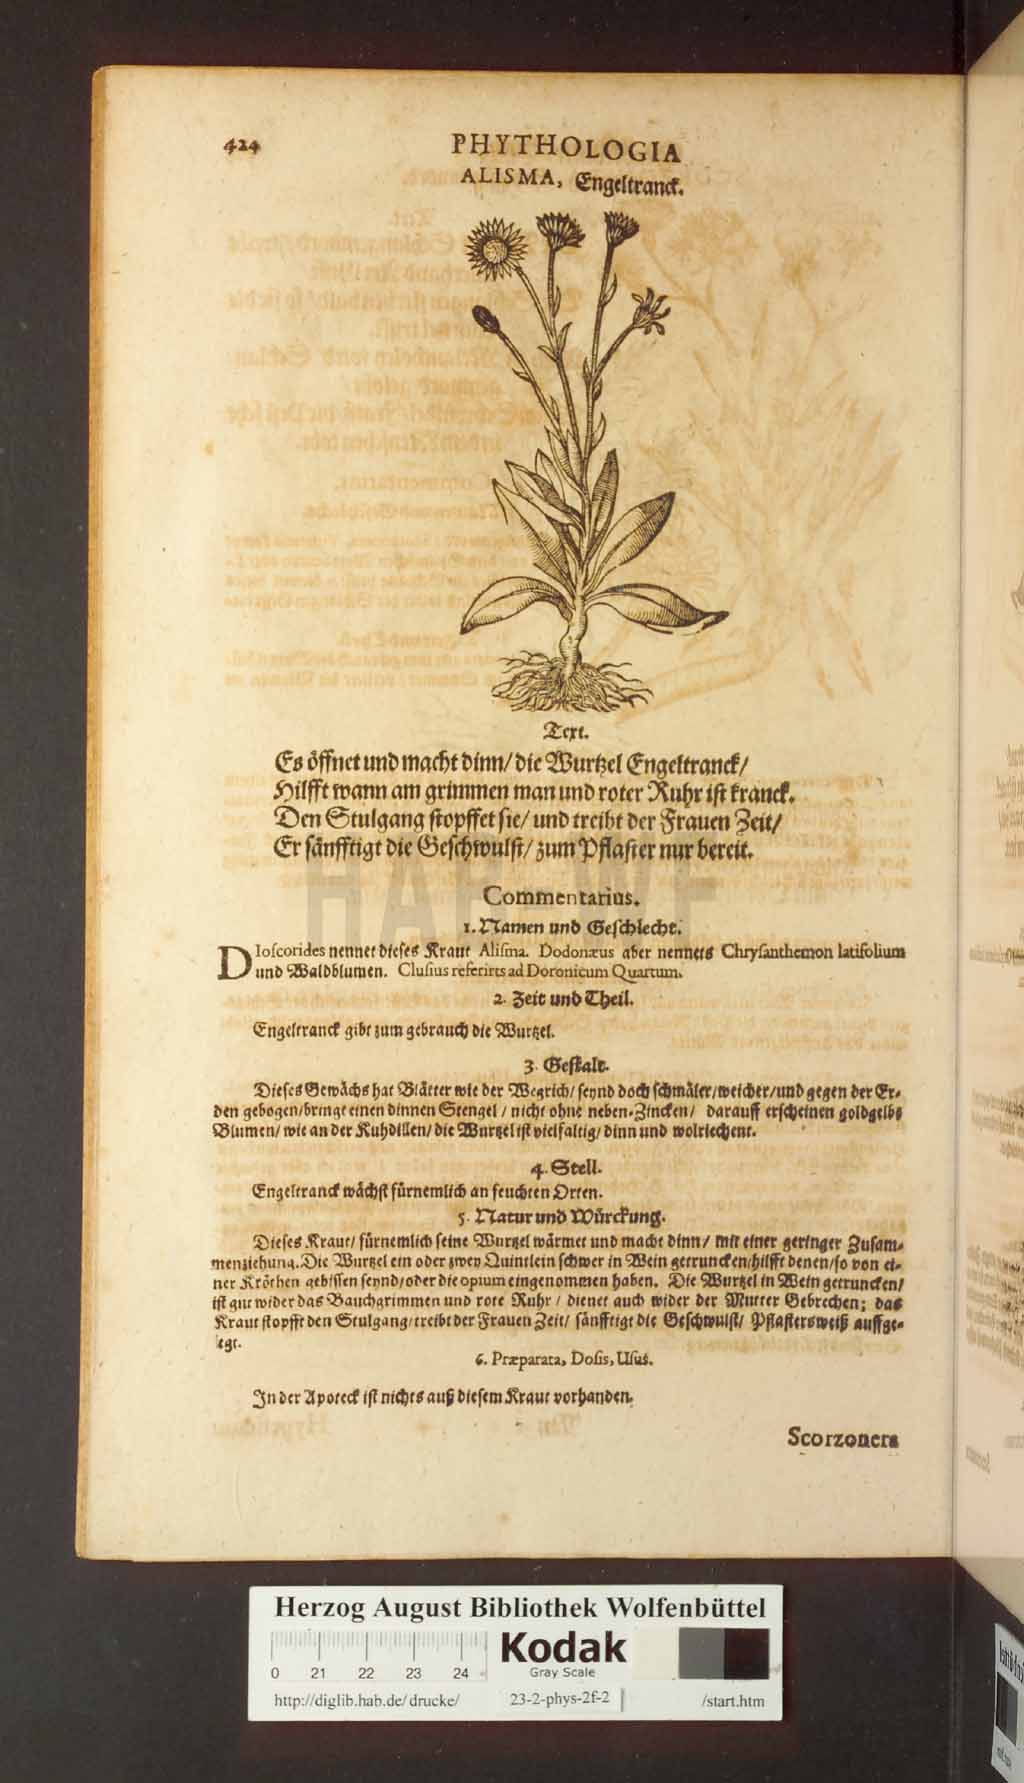 424
PHYTHOLOGIA
ALISMA, Engeltranck.
Text.
Es öffnet und macht dinn/ die Wurtzel Engeltranck/
Hilfft wann am grimmen man und roter Ruhr ist kranck.
Den Stulgang stopffet sie/ und treibt der Frauen Zeit/
Er sänfftigt die Geschwulst/ zum Pflaster nur bereit.
Commentarius.
1. Namen und Geschlecht.
DIoscorides nennet dieses Kraut Alisma. Dodonæus aber nennets Chrysanthemon latifolium
und Waldblumen. Clusius referirts ad Doronicum Quartum.
2. Zeit und Theil.
Engeltranck gibt zum gebrauch die Wurtzel.
3. Gestalt.
Dieses Gewächs hat Blätter wie der Wegrich/ seynd doch schmäler/weicher/und gegen der Er-
den gebogen/bringt einen dinnen Stengel / nicht ohne neben-Zincken/ darauff erscheinen goldgelbe
Blumen/ wie an der Kuhdillen/ die Wurtzel ist vielfaltig/ dinn und wolriechent.
4. Stell.
Engeltranck wächst fürnemlich an feuchten Orten.
5. Natur und Würckung.
Dieses Kraut/ fürnemlich seine Wurtzel wärmet und macht dinn/ mit einer geringer Zusam-
menziehung. Die Wurtzel ein oder zwey Quintlein schwer in Wein getruncken/hilfft denen/so von ei-
ner Kröthen gebissen seynd/oder die opium eingenommen haben. Die Wurtzel in Wein getruncken/
ist gut wider das Bauchgrimmen und rote Ruhr / dienet auch wider der Mutter Gebrechen; das
Kraut stopfft den Stulgang/ treibt der Frauen Zeit/ sänfftigt die Geschwulst/ Pflastersweiß auffge-
legt.
6. Præparata, Dosis, Usus.
In der Apoteck ist nichts auß diesem Kraut vorhanden.
Scorzonera
HAB WF
Herzog August Bibliothek Wolfenbüttel
0 21 22 23 24
Kodak
Gray Scale
http://diglib.hab.de/drucke/ 23-2-phys-2f-2 /start.htm